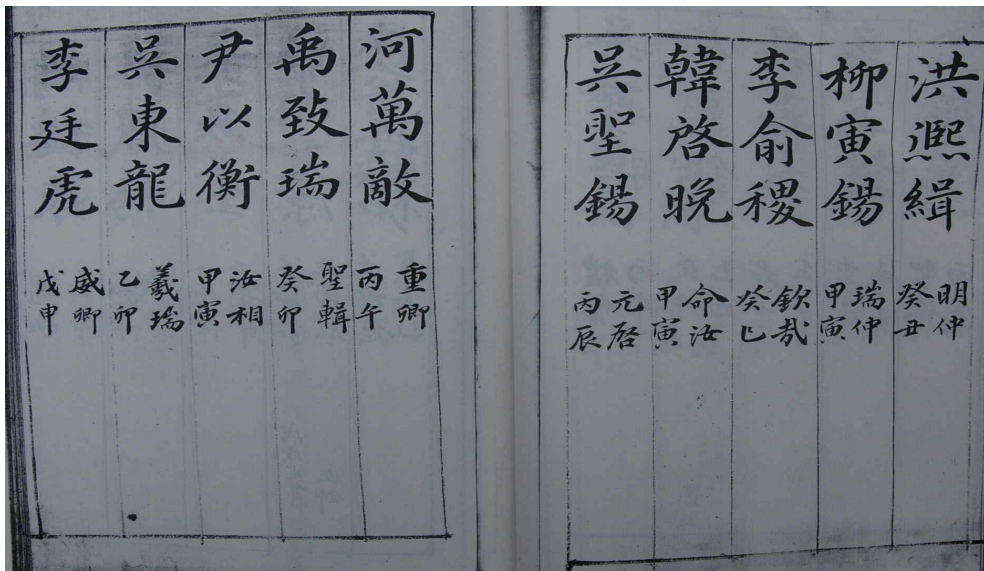 洪熈緝 明仲 癸丑
柳寅錫 瑞仲 甲寅
李俞稷 欽哉 癸巳
韓啓晩 命汝 甲寅
吳聖錫 元啓 丙辰
河萬敵 重卿 丙午
禹致瑞 聖輯 癸卯
尹以衡 汝相 甲寅
吳東龍 羲瑞 乙卯
李廷虎 威卿 戊申